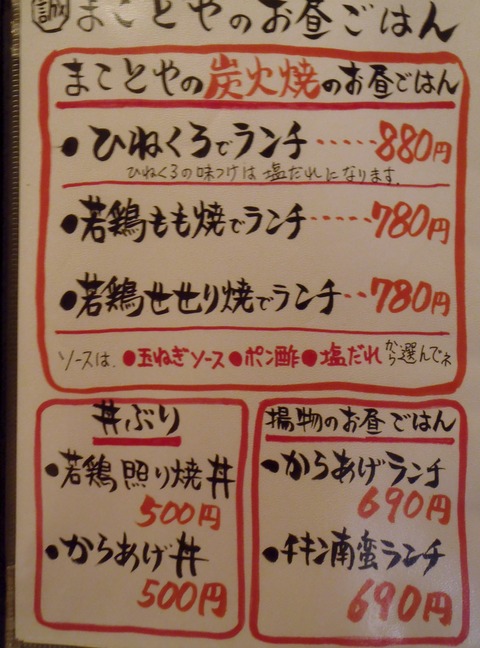 誠 まことやのお昼ごはん
まことやの炭火焼のお昼ごはん
●ひねくろでランチ‥‥‥880円
ひねくろの味つけは塩だれになります。
●若鶏もも焼でランチ‥‥‥780円
●若鶏せせり焼でランチ‥‥780円
ソースは、●玉ねぎソース●ポン酢●塩だれから選んでネ
丼ぶり
●若鶏照り焼丼
500円
●からあげ丼
500円
揚物のお昼ごはん
●からあげランチ
690円
●チキン南蛮ランチ
690円